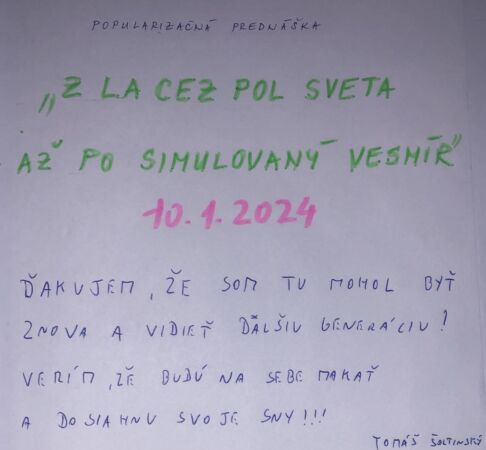 POPULARIZAČNÁ PREDNÁŠKA
„Z LA CEZ POL SVETA
AŽ PO SIMULOVANÝ VESMÍR"
10.1.2024
ĎAKUJEM, ŽE SOM TU MOHOL BYŤ
ZNOVA A VIDIEŤ ĎALŠIU GENERÁCIU!
VERÍM, ŽE BUDÚ NA SEBE MAKAŤ
A DOSIAHNU SVOJE SNY!!!
TOMÁŠ ŠOLTINSKÝ